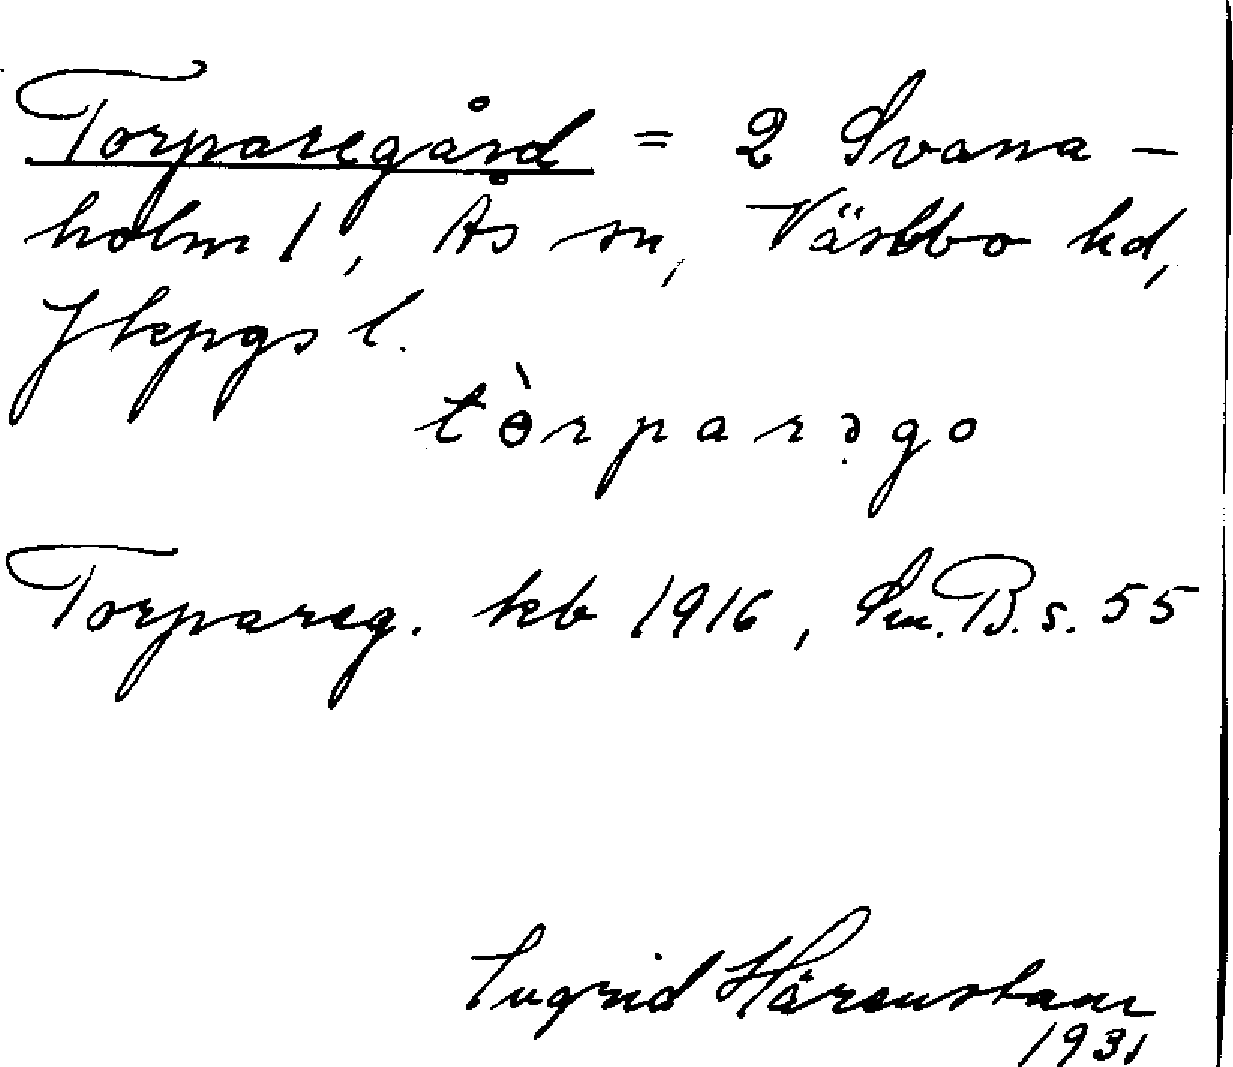 Torparegård = 2 Svana-
holm 1, Ås sn, Västbo hd,
Jkpgs l.
tɵ̀rparəgo
Torpareg. kb 1916, Sm. B. s. 55
Ingrid Härenstam
1931